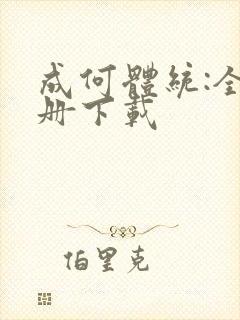 成何體統:全
册下載
伯里克